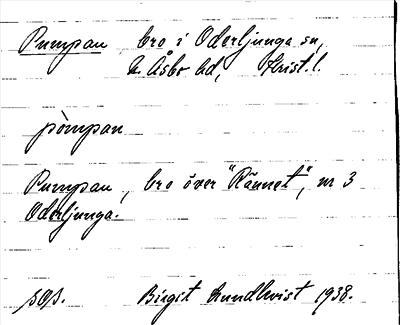 Pumpan bro i Oderljunga sn,
N. Åsbo hd, Krist. l.
pòmpan
Pumpan, bro över "Rännet", nr 3
Oderljunga.
Birgit Lundkvist 1938.